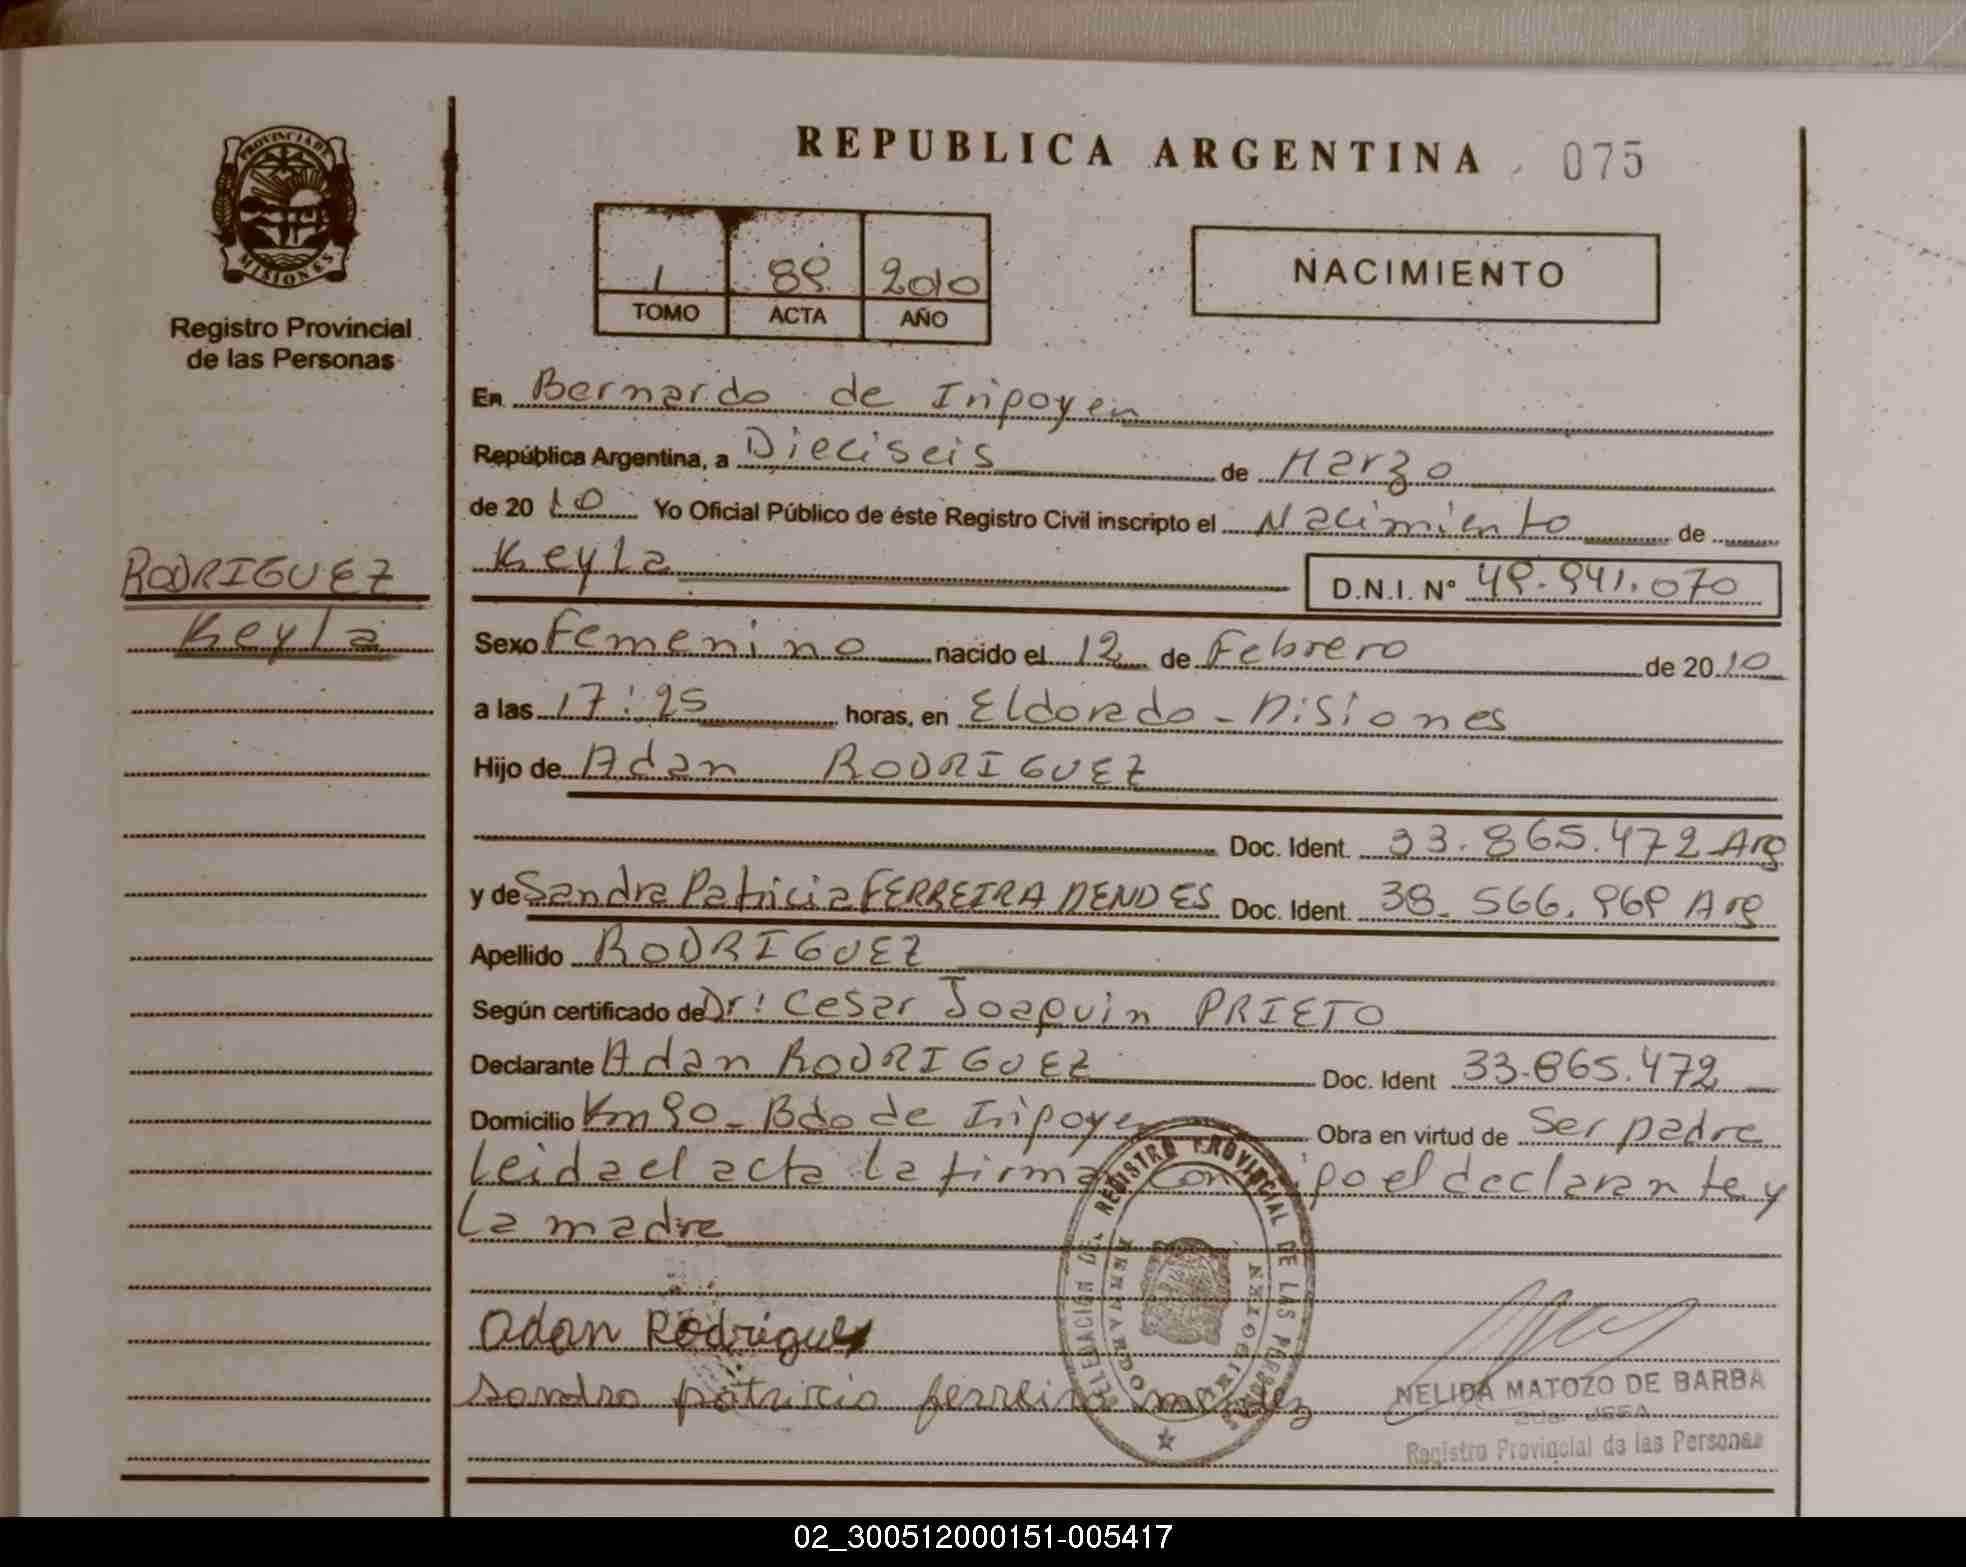 REPUBLICA ARGENTINA 075
PROVINCIA DE
MISIONES
Registro Provincial
de las Personas
1 89 2010
TOMO ACTA AÑO
NACIMIENTO
En Bernardo de Iripoyen
República Argentina, a Dieciseis de Marzo
de 20 10 Yo Oficial Público de éste Registro Civil inscripto el Nacimiento de
Keyla D.N.I. Nº 49.941.070
RODRIGUEZ
Keyla
Sexo Femenino nacido el 12 de Febrero de 20 10
a las 17:25 horas, en Eldorado - Misiones
Hijo de Adan RODRIGUEZ
Doc. Ident. 33.865.472 Arg
y de Sandra Patricia FERREIRA MENDES Doc. Ident. 38.566.969 Arg
Apellido RODRIGUEZ
Según certificado de Dr: Cesar Joaquin PRIETO
Declarante Adan RODRIGUEZ Doc. Ident 33.865.472
Domicilio Km 90 - Bdo de Iripoyen Obra en virtud de Ser padre
Leida el acta la firma con el declarante y
la madre
REGISTRO PROVINCIAL DE LAS PERSONAS
adan Rodriguez
sandra patricia ferreira mendez
NELIDA MATOZO DE BARBA
JEFA
Registro Provincial de las Personas
02_300512000151-005417